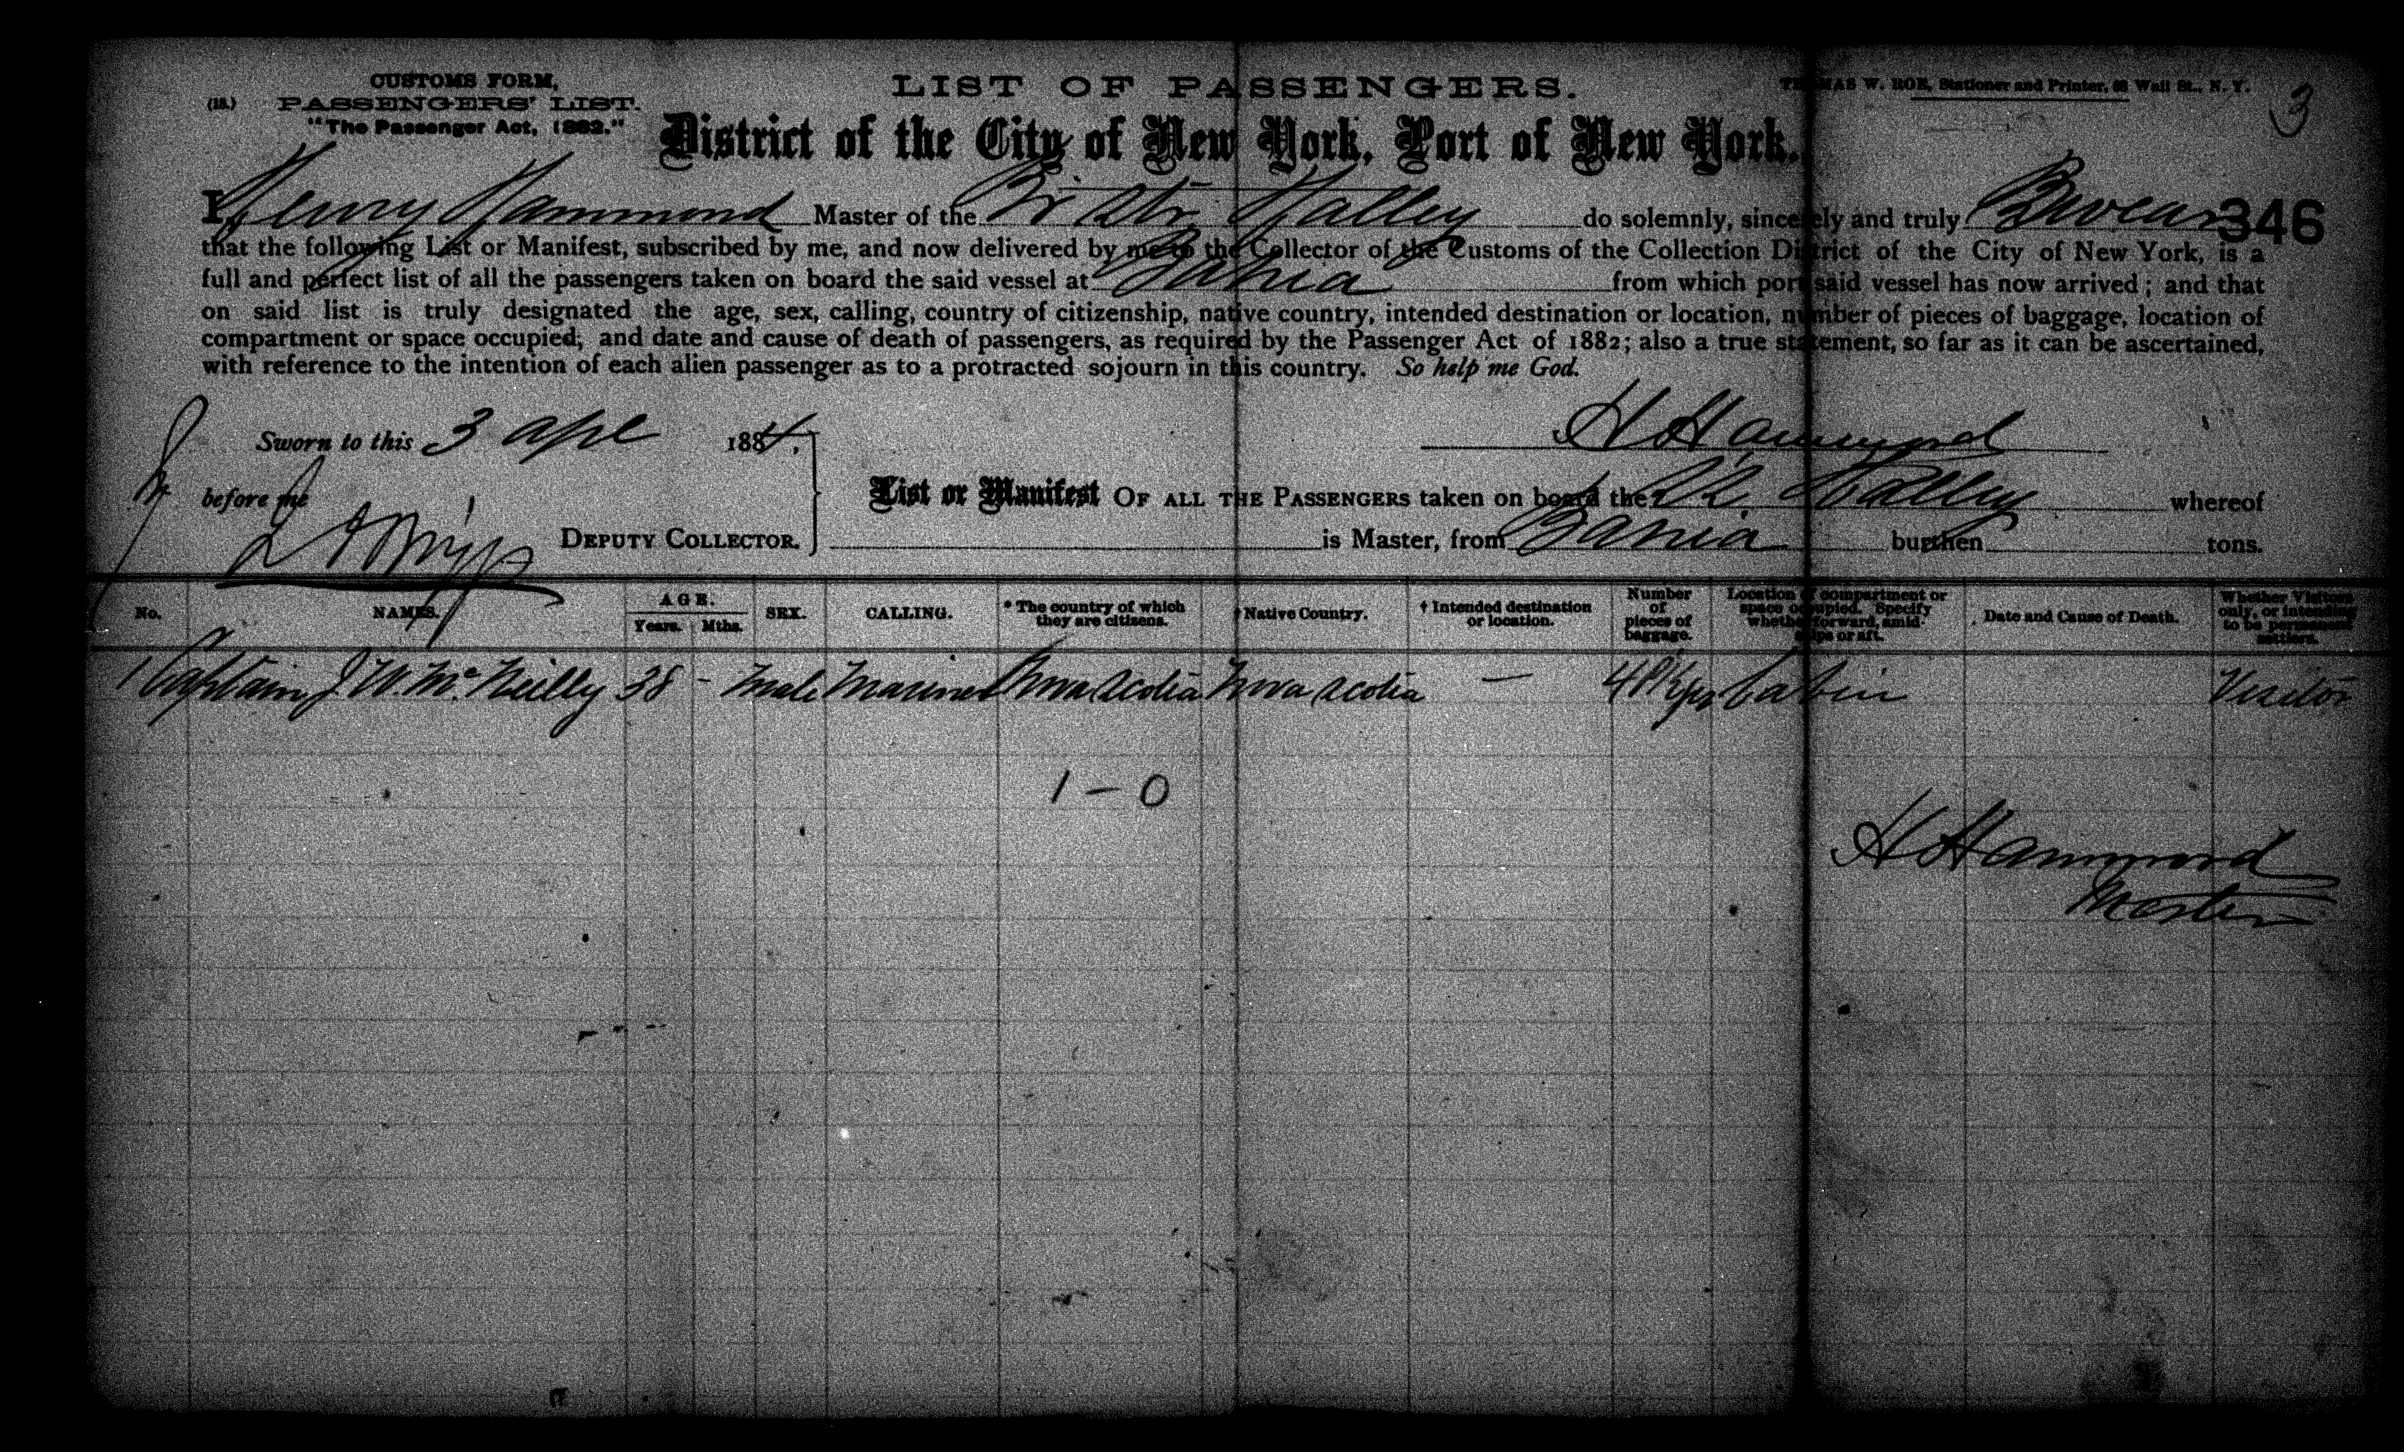 CUSTOMS FORM,
(18.) PASSENGERS' LIST.
"The Passenger Act, 1882."
LIST OF PASSENGERS.
THOMAS W. ROE, Stationer and Printer, 68 Wall St., N. Y.
3
District of the City of New York, Port of New York.
I, Henry Hammond Master of the Br Str Halley do solemnly, sincerely and truly Swear 346
that the following List or Manifest, subscribed by me, and now delivered by me to the Collector of the Customs of the Collection District of the City of New York, is a
full and perfect list of all the passengers taken on board the said vessel at Bahia from which port said vessel has now arrived; and that
on said list is truly designated the age, sex, calling, country of citizenship, native country, intended destination or location, number of pieces of baggage, location of
compartment or space occupied; and date and cause of death of passengers, as required by the Passenger Act of 1882; also a true statement, so far as it can be ascertained,
with reference to the intention of each alien passenger as to a protracted sojourn in this country. So help me God.
Sworn to this 3 Apl 1884, H Hammond
before me
DEPUTY COLLECTOR.
List or Manifest OF ALL THE PASSENGERS taken on board the SS Halley whereof
is Master, from Bahia burthen tons.
No. NAMES. AGE. Years. Mths. SEX. CALLING. * The country of which they are citizens. † Native Country. † Intended destination or location. Number of pieces of baggage. Location of compartment or space occupied. Specify whether forward, amidships or aft. Date and Cause of Death. Whether Visitors only, or intending to be permanent settlers.
1 Captain J. W. McNeilly 38 - Male Mariner Nova Scotia Nova Scotia — 4 Pkgs Cabin Visitor
1 - 0
H Hammond
Master